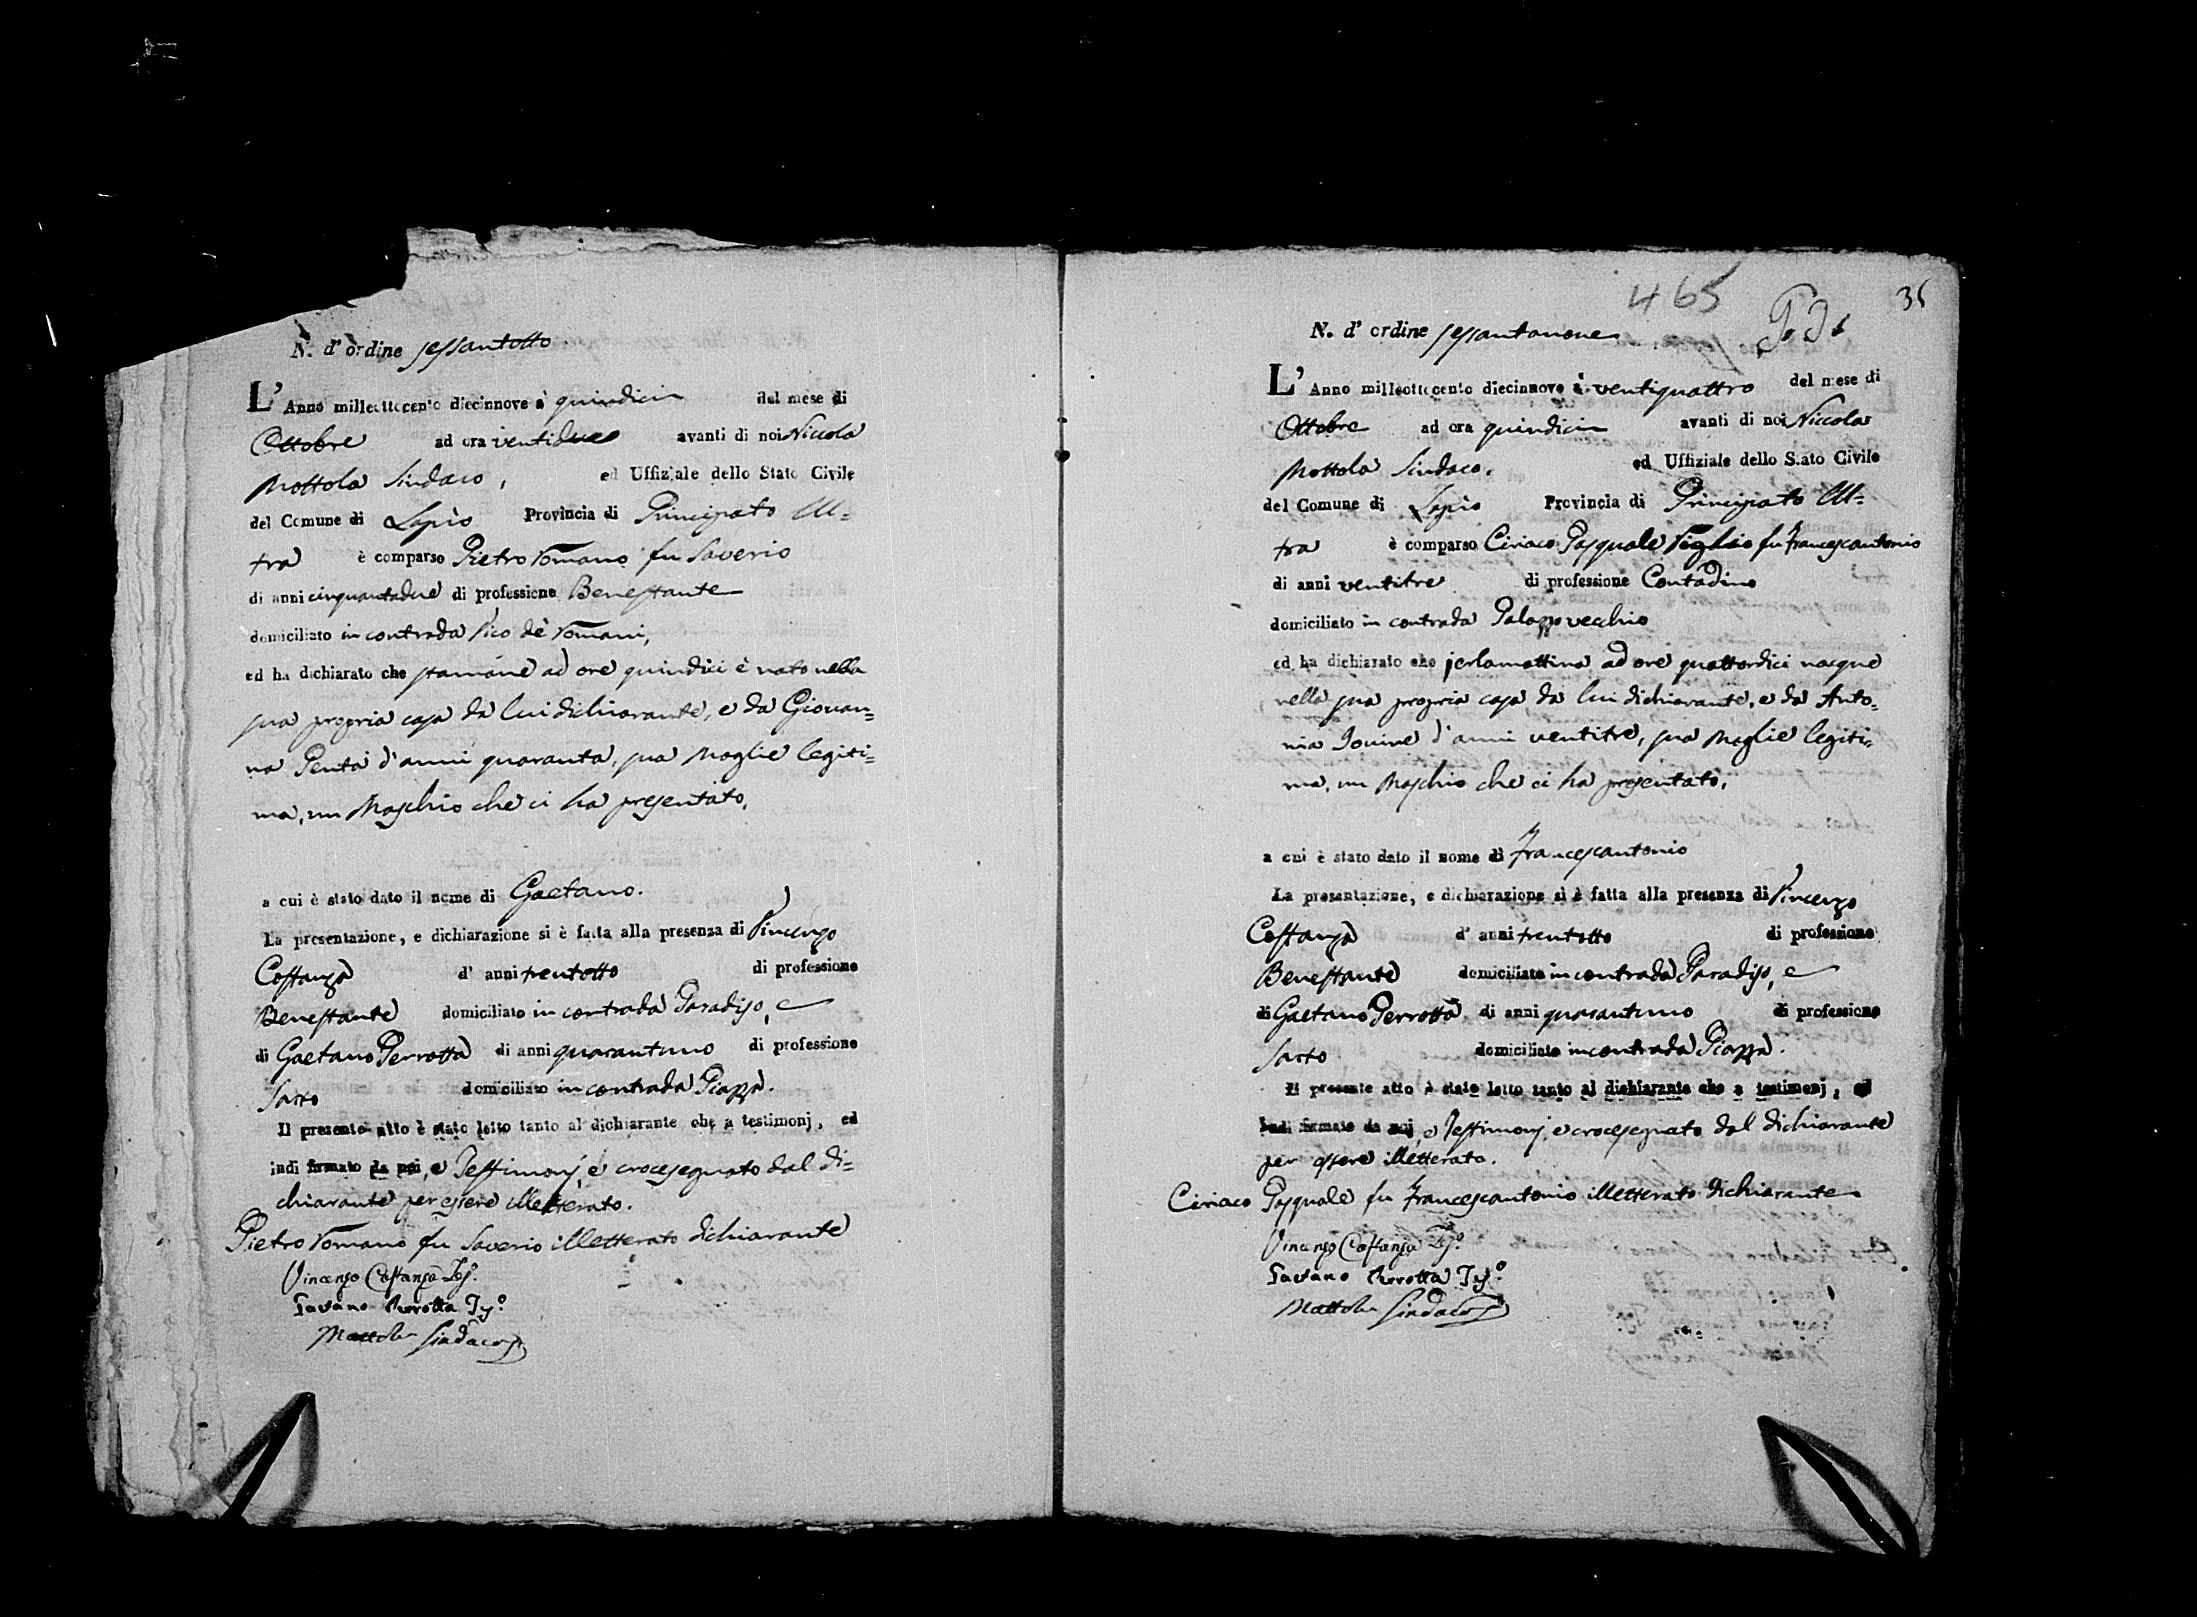 N. d' ordine sessantotto
L' Anno milleottocento diecinnove à quindici del mese di
Ottobre ad ora ventidue avanti di noi Niccola
Mottola Sindaco, ed Uffiziale dello Stato Civile
del Comune di Lapio Provincia di Principato Ul=
tra è comparso Pietro Romano fu Saverio
di anni cinquantadue di professione Benestante
domiciliato in contrada Vico de Romani,
ed ha dichiarato che stamane ad ore quindici è nato nella
sua propria casa da lui dichiarante, e da Giovan=
na Penta d'anni quaranta, sua Moglie legiti=
ma, un Maschio che ci ha presentato,
a cui è stato dato il nome di Gaetano.
La presentazione, e dichiarazione si è fatta alla presenza di Vincenzo
Costanza d' anni trentotto di professione
Benestante domiciliato in contrada Paradiso, e
di Gaetano Perrotta di anni quarantuno di professione
Sarto domiciliato in contrada Piazza.
Il presente atto è stato letto tanto al dichiarante che a testimonj, ed
indi firmato da noi, e Testimonj, e crocesegnato dal di=
chiarante per essere illetterato.
Pietro Romano fu Saverio illetterato dichiarante
Vincenzo Costanza Tes.º
Gaetano Perrotta Tes.º
Mottola Sindaco
465
35
N. d' ordine sessantanove
L' Anno milleottocento diecinnove à ventiquattro del mese di
Ottobre ad ora quindici avanti di noi Niccola
Mottola Sindaco, ed Uffiziale dello Stato Civile
del Comune di Lapio Provincia di Principato Ul=
tra è comparso Ciriaco Pasquale Viglio fu Francescantonio
di anni ventitre di professione Contadino
domiciliato in contrada Palazzo vecchio
ed ha dichiarato che jerlamattina ad ore quattordici nacque
nella sua propria casa da lui dichiarante, e da Anto=
nia Jovine d'anni ventitre, sua Moglie legiti=
ma, un Maschio che ci ha presentato,
a cui è stato dato il nome di Francescantonio
La presentazione, e dichiarazione si è fatta alla presenza di Vincenzo
Costanza d' anni trentotto di professione
Benestante domiciliato in contrada Paradiso, e
di Gaetano Perrotta di anni quarantuno di professione
Sarto domiciliato in contrada Piazza.
Il presente atto è stato letto tanto al dichiarante che a testimonj, ed
indi firmato da noi, e Testimonj, e crocesegnato dal dichiarante
per essere illetterato.
Ciriaco Pasquale fu Francescantonio illetterato dichiarante
Vincenzo Costanza Tes.º
Gaetano Perrotta Tes.º
Mottola Sindaco